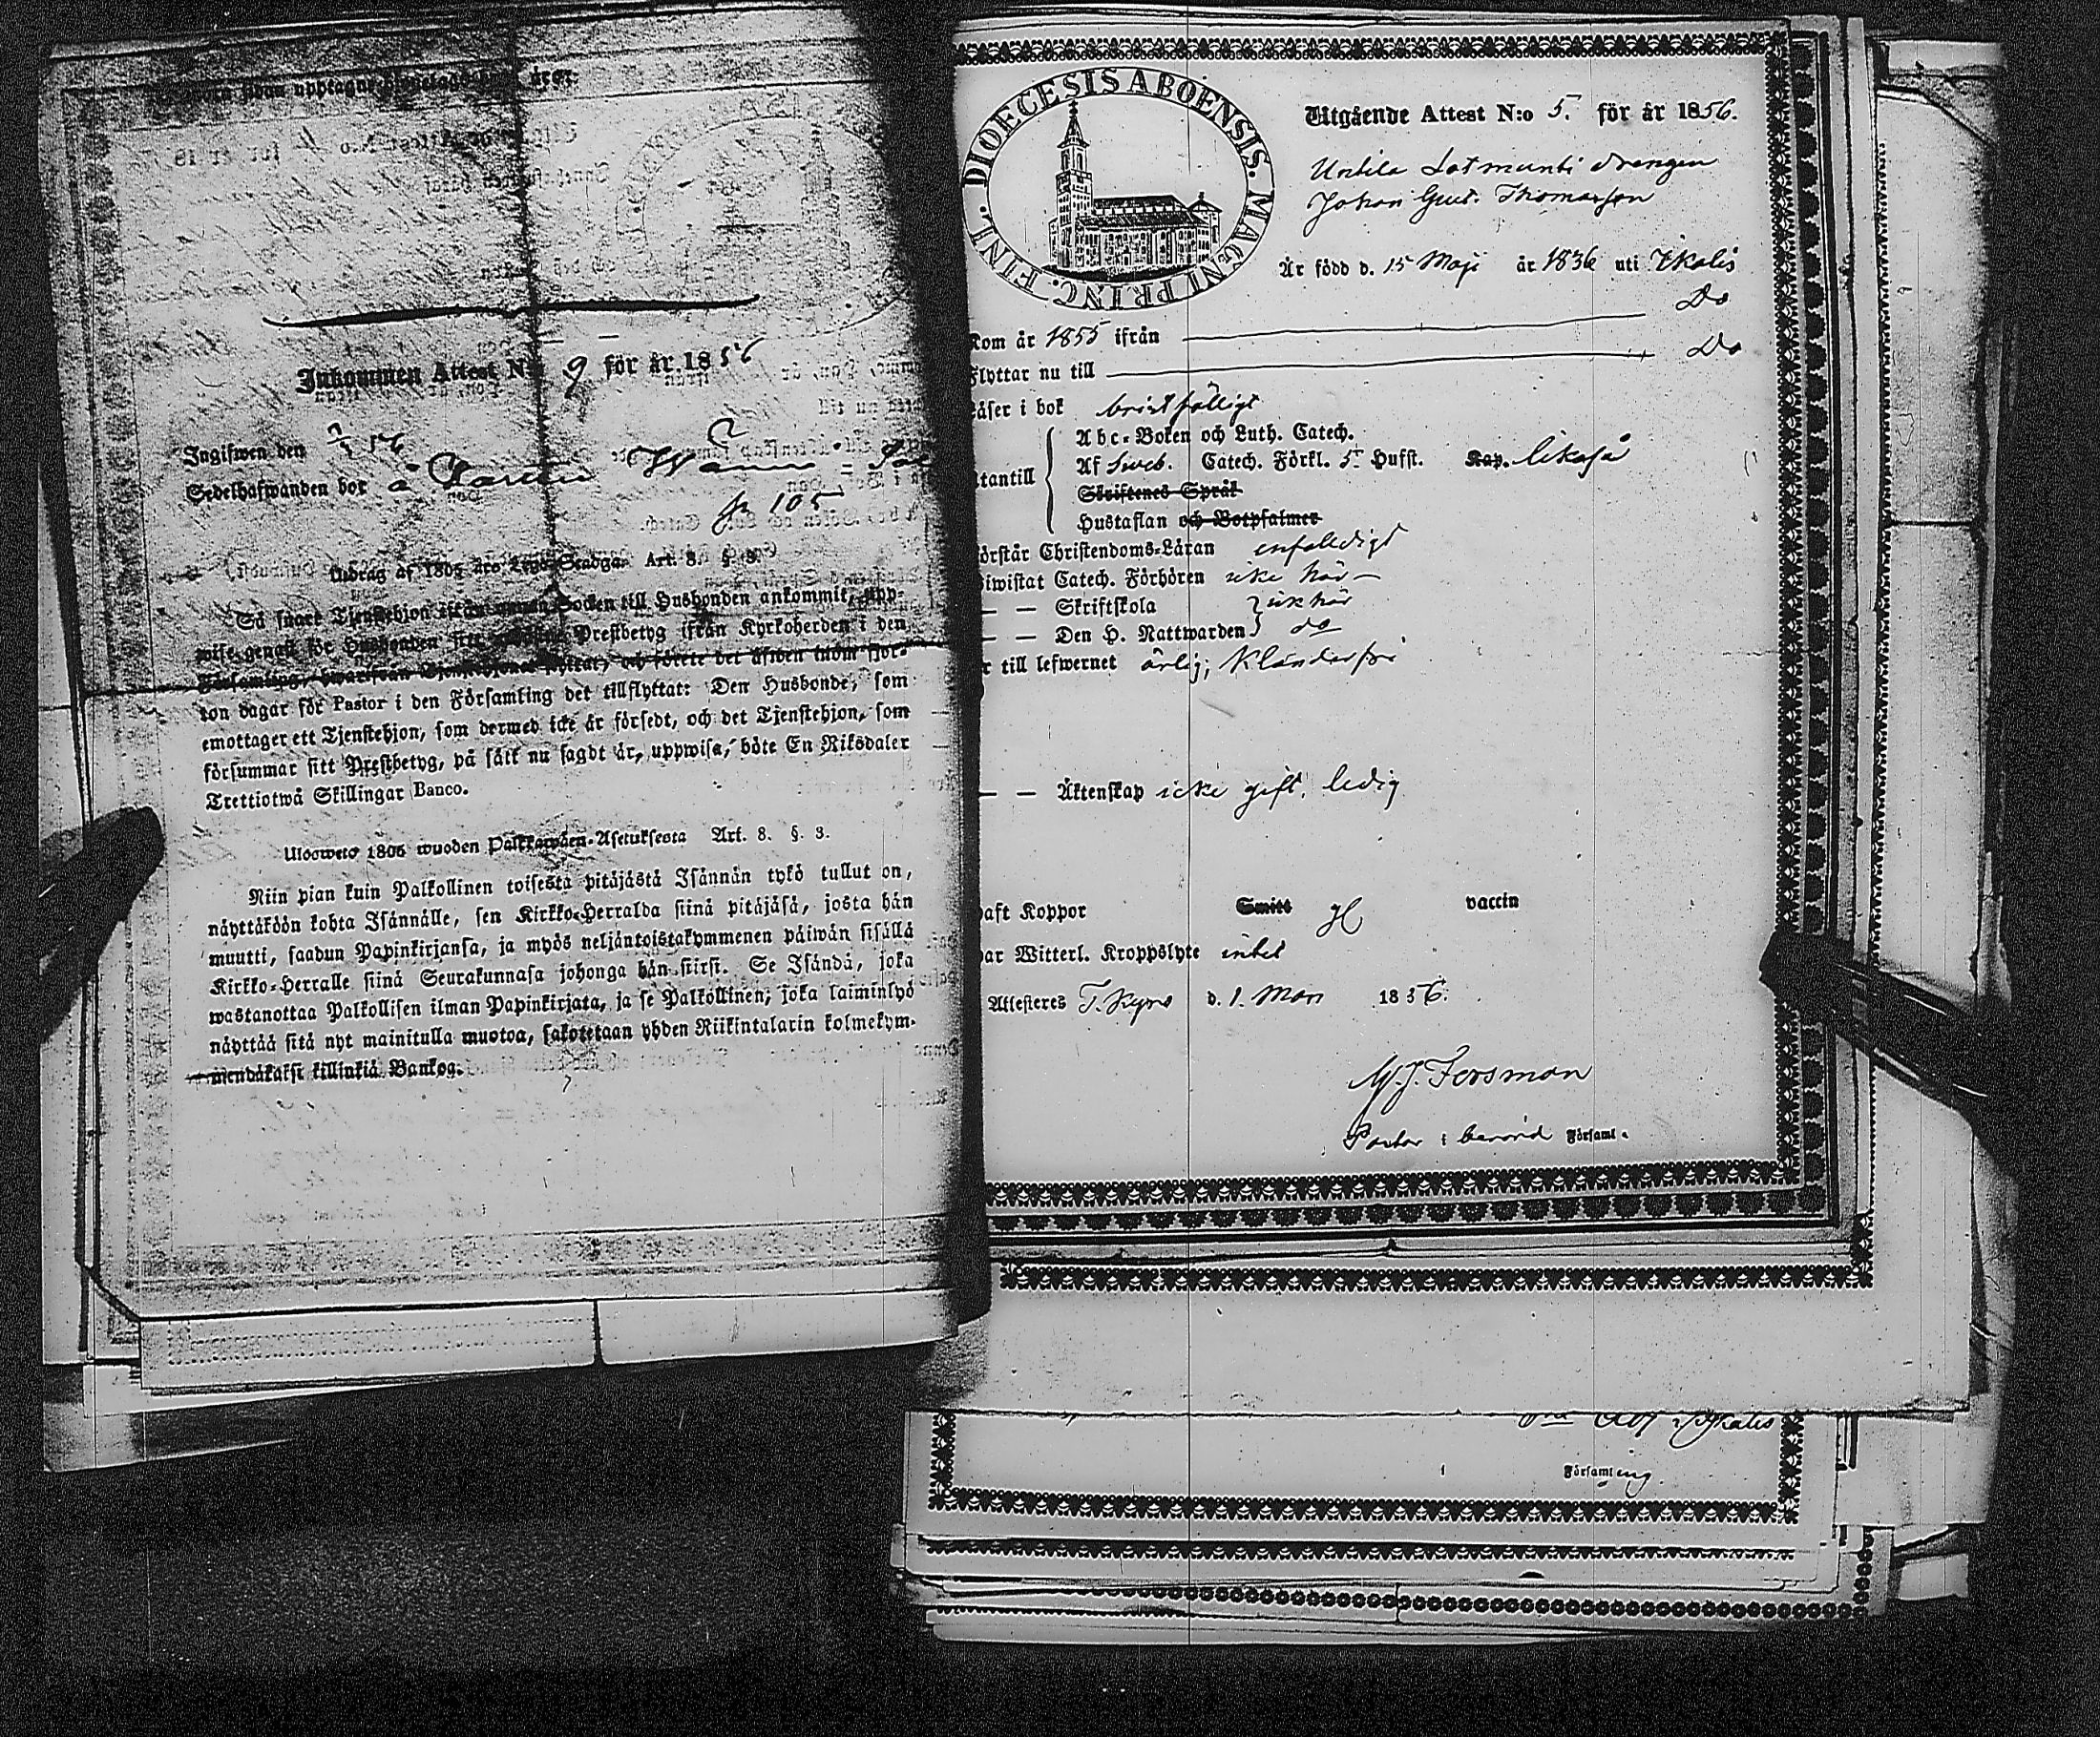 Inkommen Attest N:o 9 för år 1856
Ingifwen den 2/3 56
Sedelhafwanden bor å
p 105
Utdrag af 1805 års Lego-Stadga. Art. 8. §. 3.
Så snart Tjenstehjon ifrån annan Socken till Husbonden ankommit, upp-
wise genast för Husbonden sitt Prestbetyg ifrån Kyrkoherden i den
Församling, hwarifrån Tjenstehjonet flyttat, och förete det äfwen inom fjor-
ton dagar för Pastor i den Församling det tillflyttat: Den Husbonde, som
emottager ett Tjenstehjon, som dermed icke är försedt, och det Tjenstehjon, som
försummar sitt Prestbetyg, på sätt nu sagdt är, uppwisa, böte En Riksdaler
Trettiotwå Skillingar Banco.
Ulosweto 1805 wuoden Palkkawäen-Asetuksesta Art. 8. §. 3.
Niin pian kuin Palkollinen toisesta pitäjästä Isännän tykö tullut on,
näyttäköön kohta Isännälle, sen Kirkko-Herralda siinä pitäjäsä, josta hän
muutti, saadun Papinkirjansa, ja myös neljäntoistakymmenen päiwän sisällä
Kirkko-Herralle siinä Seurakunnasa johonga hän siirsi. Se Isändä, joka
wastanottaa Palkollisen ilman Papinkirjata, ja se Palkollinen, joka laiminlyö
näyttää sitä nyt mainitulla muotoa, sakotetaan yhden Riikintalarin kolmekym-
mendäkaksi killinkiä Bankog.
DIOECESIS ABOENSIS. MAGNI PRINC. FINL.
Utgående Attest N:o 5. för år 1856.
Untila Lotmunti drengen
Johan Gust. Thomasson
År född d. 15 Maji år 1836 uti Ikalis
Kom år 1855 ifrån Do
Flyttar nu till Do
Läser i bok bristfälligt
Utantill
Abc-Boken och Luth. Catech.
Af Sveb. Catech. Förkl. 5 Hufst. Kap. likaså
Skriftenes Språk
Hustaflan och Botpsalmer
Förstår Christendoms-Läran enfaldigt
Biwistat Catech. Förhören icke här
— — Skriftskola icke här
— — Den H. Nattwarden do
Är till lefwernet ärlig; klanderfri
— — Äktenskap icke gift, ledig
Haft Koppor Smitt vaccin
Har Witterl. Kroppslyte intet
Attesteres T. Kyro d. 1. Mars 1856.
M. J. Forsman
Pastor i benämd Församl.
Ikalis
Församling.